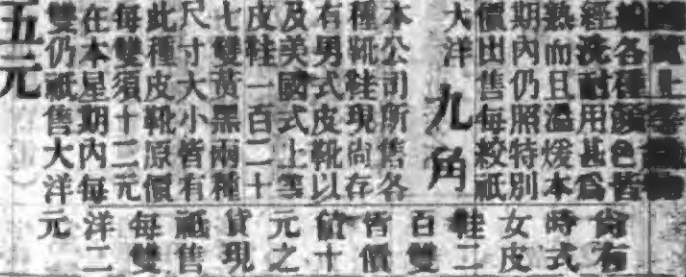 各種顏色皆
經洗耐用甚爲
熱而且溫煖本
期內仍照特別
價出售每絞祇
大洋 九角
本公司所售各
種靴鞋現尚存
有男式皮靴以
及美國式上等
皮鞋一百二十
七雙黃黑兩種
尺寸大小皆有
此種皮靴原價
每雙須十二元
在本星期內每
雙仍祇售大洋
五元
尚有
時式
女皮
鞋二
百雙
皆價
值十
元之
貨現
祇售
每雙
洋二
元